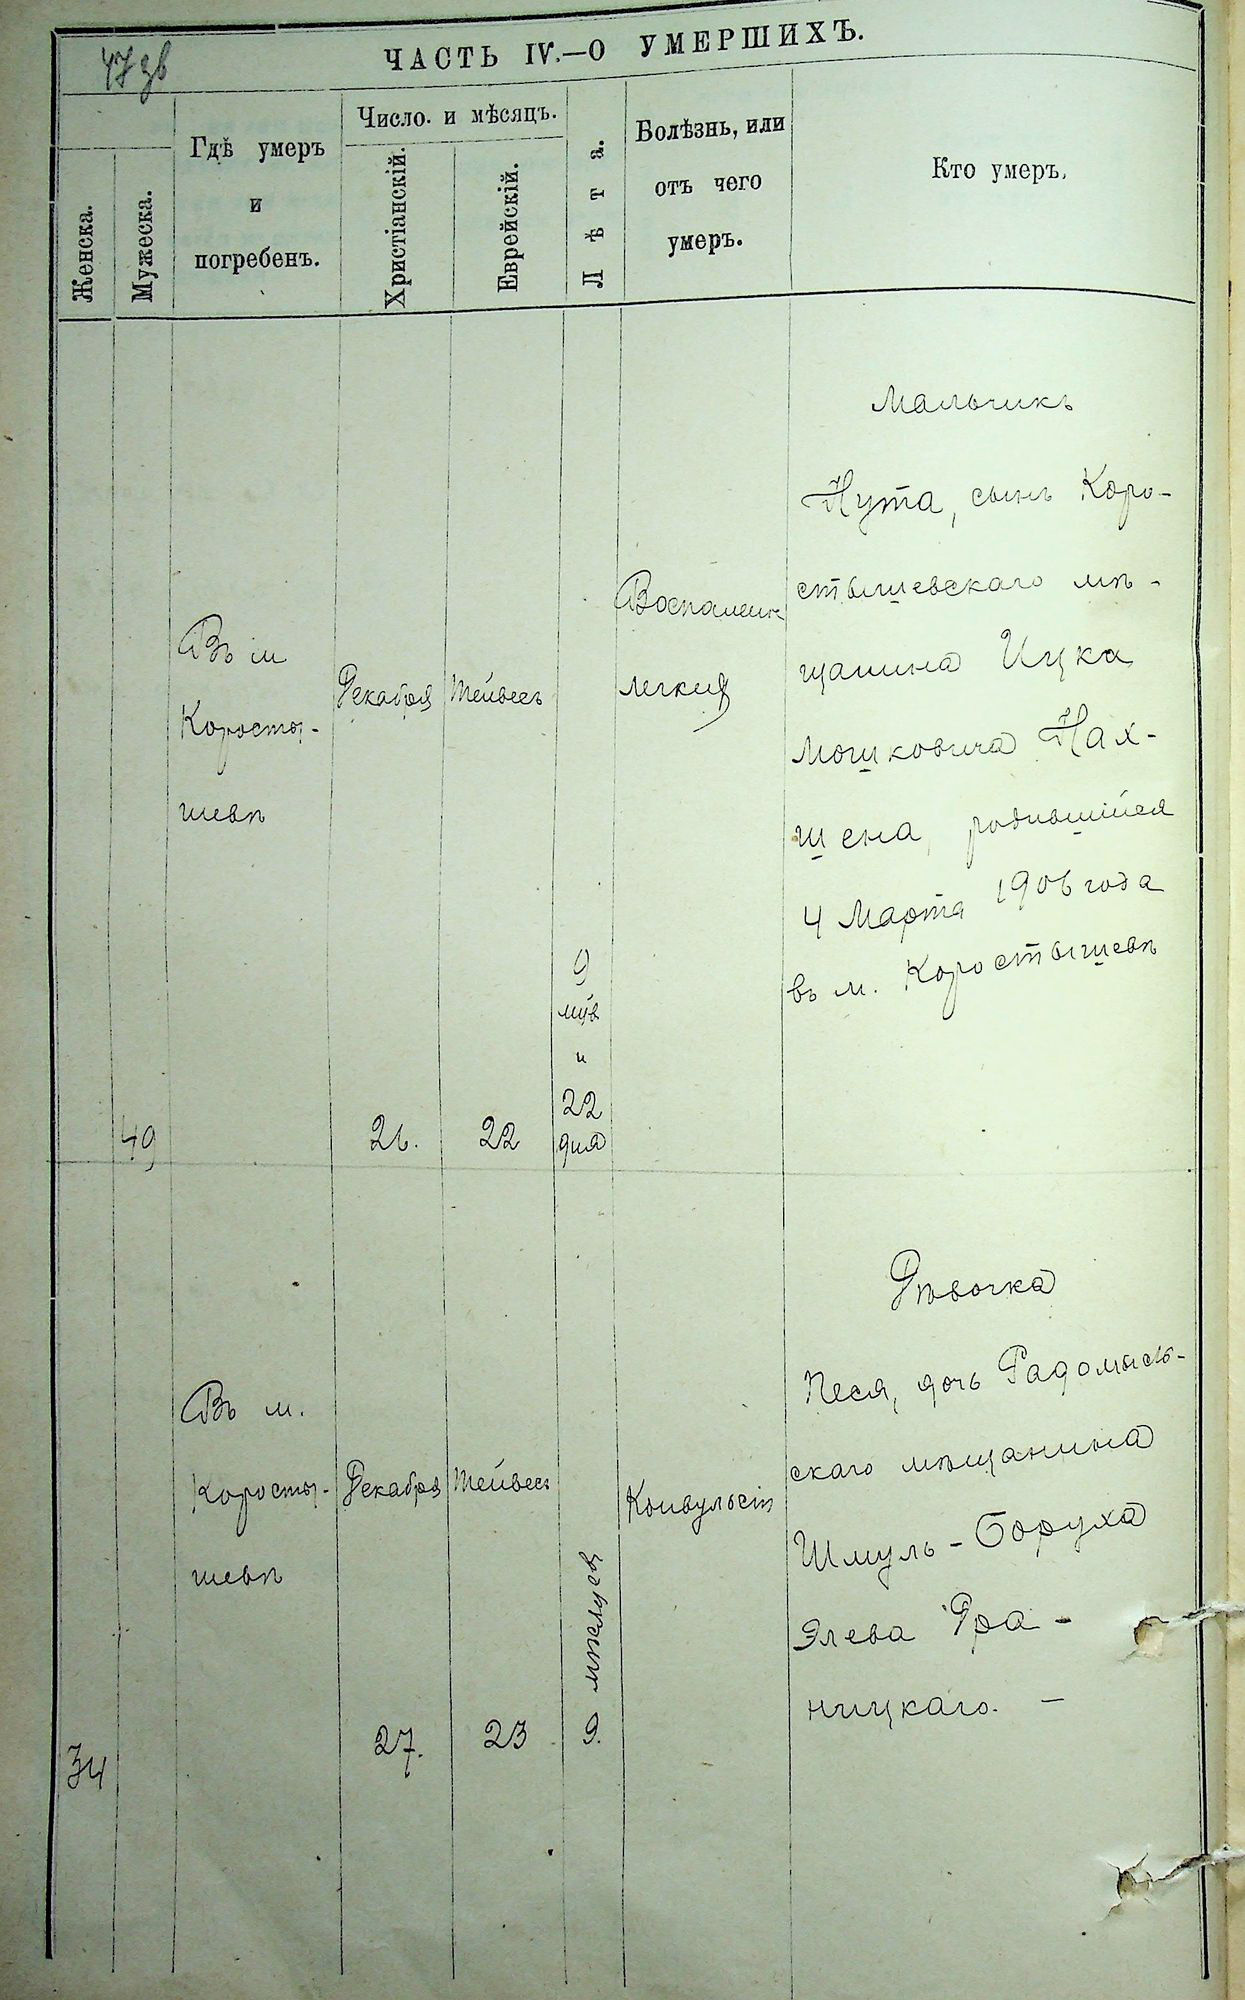 47 зв
ЧАСТЬ IV.—О УМЕРШИХЪ.
Женска.
Мужеска.
Гдѣ умеръ
и
погребенъ.
Число. и мѣсяцъ.
Христіанскій.
Еврейскій.
Лѣта.
Болѣзнь, или
отъ чего
умеръ.
Кто умеръ.
49
Въ м
Коросты-
шевѣ
Декабря
26.
Тейвесъ
22
9
м-въ
и
22
дня
Воспаленіе
легкихъ
Мальчикъ
Нута, сынъ Коро-
стышевскаго мѣ-
щанина Ицка
Мошковича Нах-
шена, родившійся
4 Марта 1906 года
въ м. Коростышевѣ
34
Въ м.
Коросты-
шевѣ
Декабря
27.
Тейвесъ
23
9. мѣсяцевъ
Конвульсіи
Дѣвочка
Песя, дочь Радомысль-
скаго мѣщанина
Шмуль-Боруха
Элева Гра-
ницкаго. —